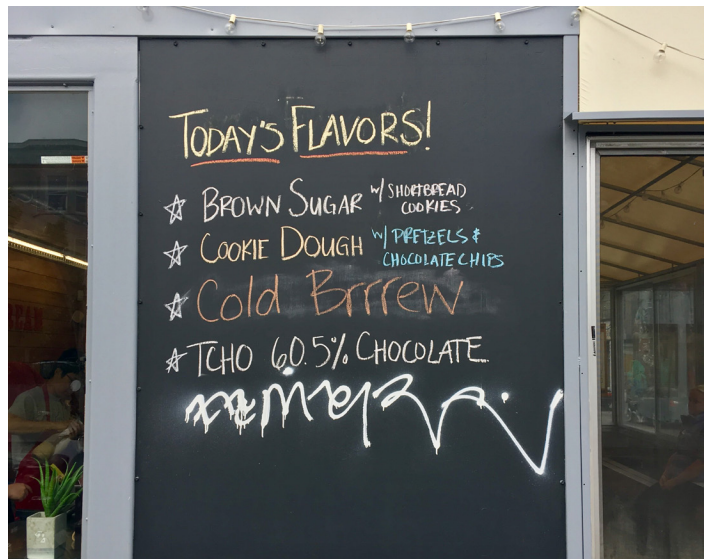 TODAY'S FLAVORS!
☆ BROWN SUGAR w/ SHORTBREAD COOKIES
☆ COOKIE DOUGH w/ PRETZELS & CHOCOLATE CHIPS
☆ Cold Brrrew
☆ TCHO 60.5% CHOCOLATE